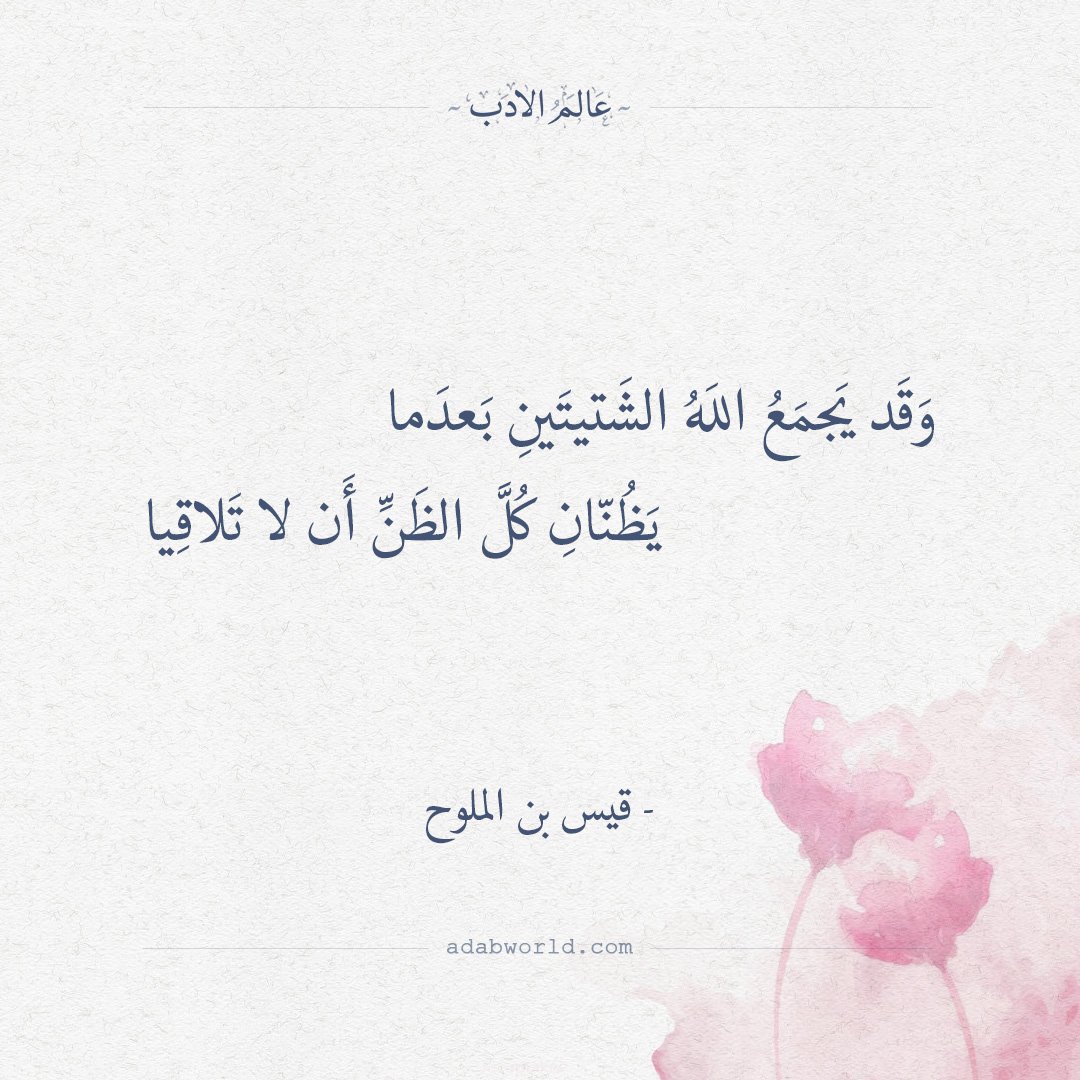 ~ عَالَمُ الأدَب ~
وَقَد يَجمَعُ اللَهُ الشَتيتَينِ بَعدَما
يَظُنّانِ كُلَّ الظَنِّ أَن لا تَلاقِيا
- قيس بن الملوح
adabworld.com